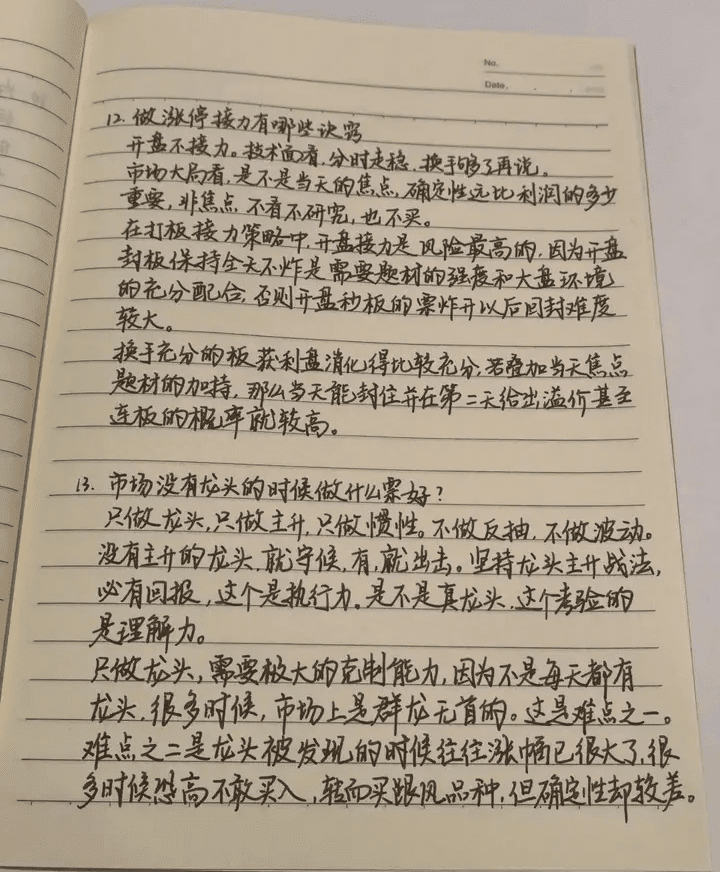 No.
Date.
12. 做涨停接力有哪些诀窍
开盘不接力。技术面看,分时走稳,换手够了再说。
市场大局看,是不是当天的焦点,确定性远比利润的多少
重要,非焦点不看不研究,也不买。
在打板接力策略中,开盘接力是风险最高的,因为开盘
封板保持全天不炸是需要题材的强度和大盘环境
的充分配合,否则开盘秒板的票炸开以后回封难度
较大。
换手充分的板获利盘消化得比较充分,若叠加当天焦点
题材的加持,那么当天能封住并在第二天给出溢价甚至
连板的概率就较高。
13. 市场没有龙头的时候做什么票好?
只做龙头,只做主升,只做惯性。不做反抽,不做波动。
没有主升的龙头,就守候,有,就出击。坚持龙头主升战法,
必有回报,这个是执行力。是不是真龙头,这个考验的
是理解力。
只做龙头,需要极大的克制能力,因为不是每天都有
龙头,很多时候,市场上是群龙无首的。这是难点之一。
难点之二是龙头被发现的时候往往涨幅已很大了,很
多时候恐高不敢买入,转而买跟风品种,但确定性却较差。